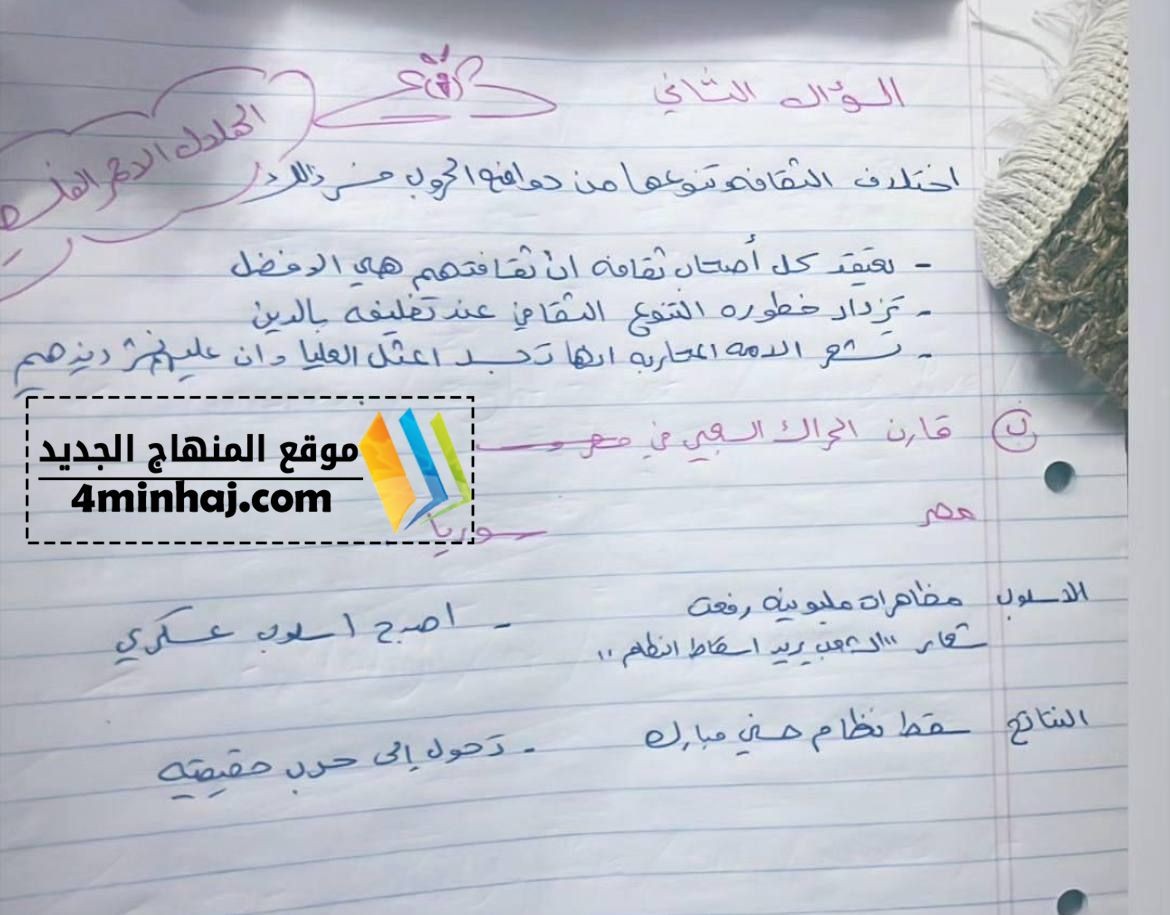 السؤال الثاني
الهلال الاحمر الفلس
اختلاف الثقافه وتنوعها من دوافع الحروب فسر ذلك
- يعتقد كل أصحاب ثقافه ان ثقافتهم هي الافضل
- تزداد خطوره التنوع الثقافي عند تغليفه بالدين
- تشعر الامه المحاربه انها تجسد المثل العليا وان عليهم نشر دينهم
ن) قارن الحراك الشعبي في
موقع المنهاج الجديد
4minhaj.com
مصر سوريا
الاسلوب مظاهرات مليونيه رفعت - اصبح اسلوب عسكري
شعار "الشعب يريد اسقاط النظام"
النتائج سقط نظام حسني مبارك - تحول إلى حرب حقيقيه